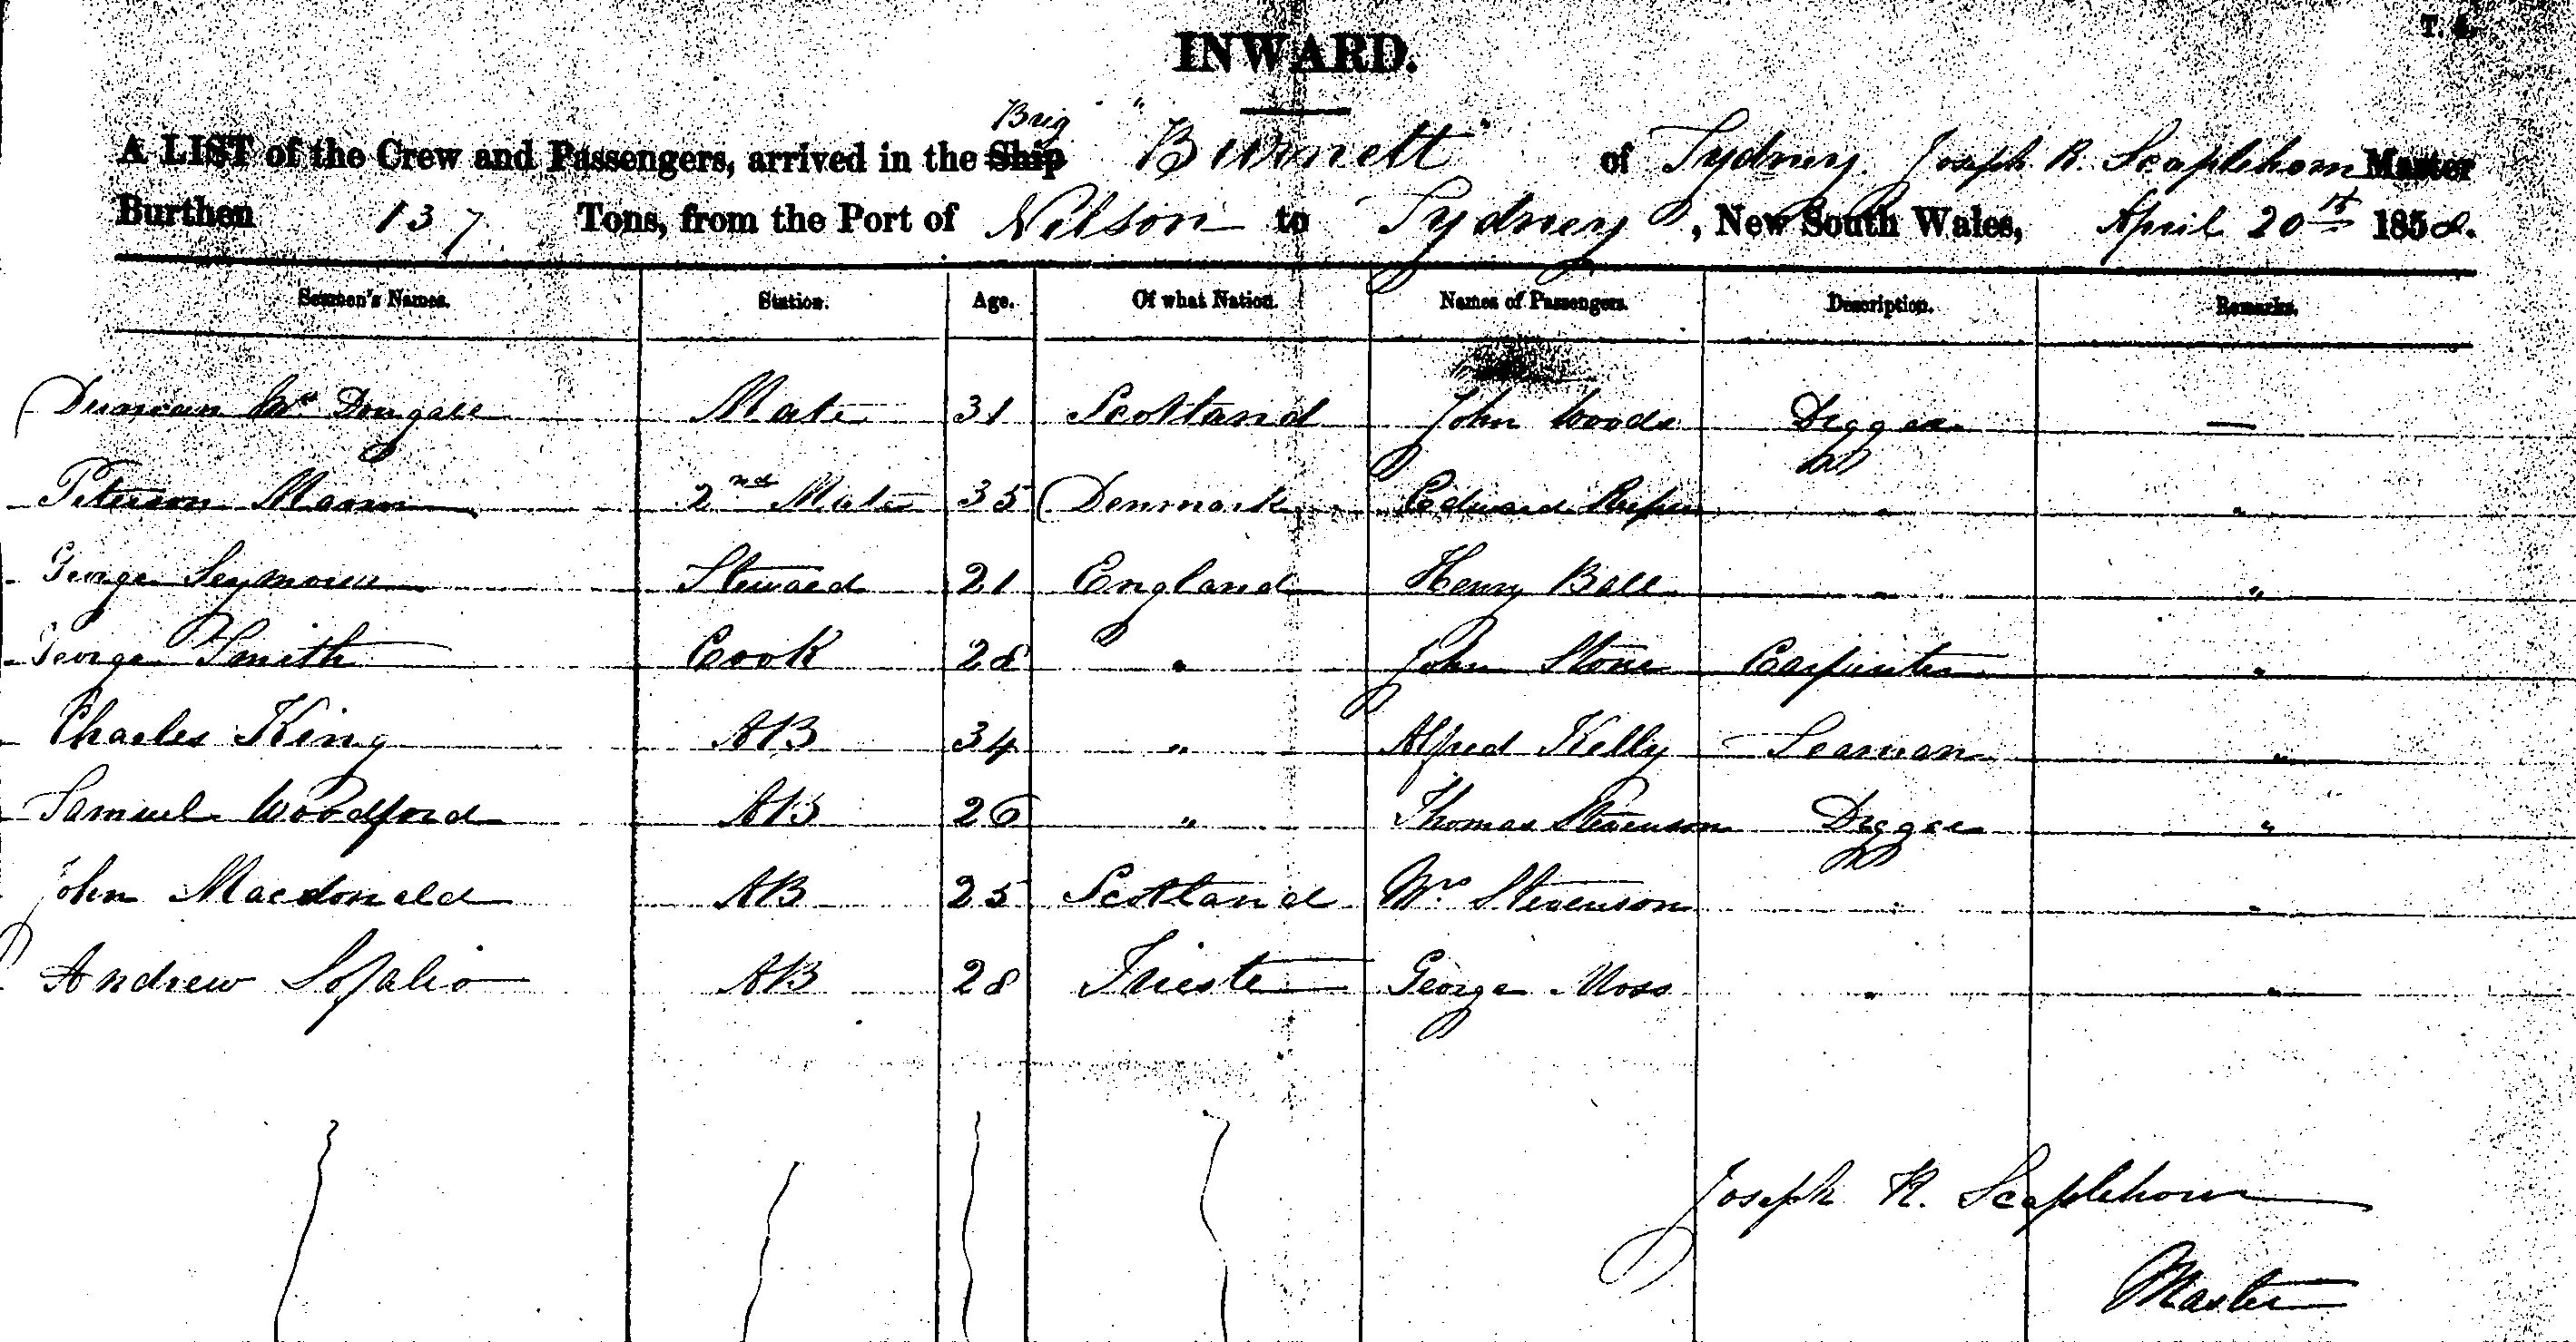 T. 4.
INWARD.
Brig
A LIST of the Crew and Passengers, arrived in the Ship "Burnett" of Sydney Joseph R. Scaplehorn Master
Burthen 137 Tons, from the Port of Nelson to Sydney, New South Wales, April 20th 1858.
Seamen's Names. Station. Age. Of what Nation. Names of Passengers. Description. Remarks.
Duncan McDougall Mate 31 Scotland John Woods Digger —
Peterson 2nd Mate 35 Denmark Edward " "
George Seymour Steward 21 England Henry Ball " "
George Smith Cook 28 " John Stone Carpenter "
Charles King AB 34 " Alfred Kelly Seaman "
Samuel Woodford AB 26 " Thomas Stevenson Digger "
John Macdonald AB 25 Scotland Mrs Stevenson " "
Andrew AB 28 Trieste George Moss " "
Joseph R. Scaplehorn
Master